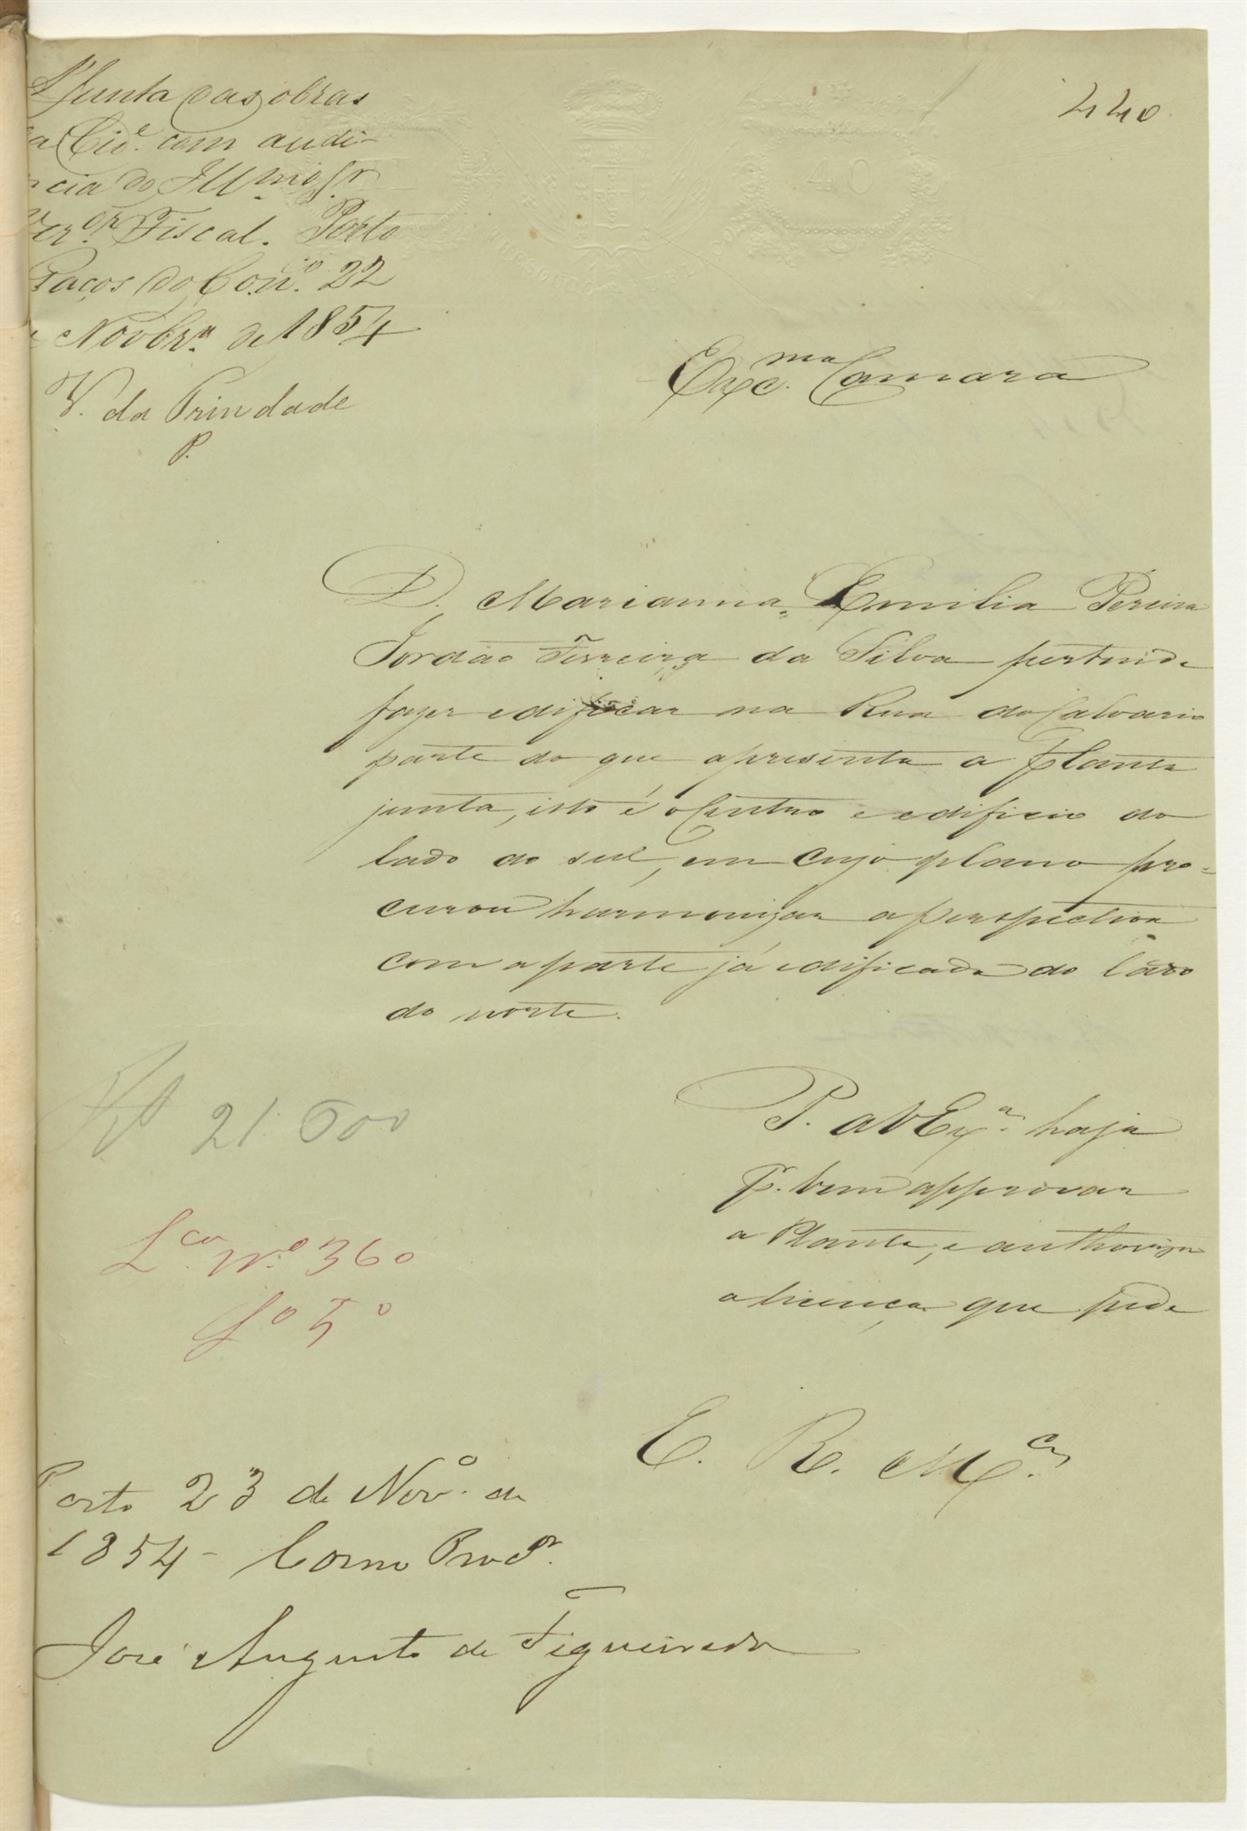 440
Á Junta das obras
da Cid.e com audi-
encia do Ill.mo Sr.
Ver.or Fiscal. Porto
Paços do Con.o 22
de Novbr.o de 1854
V. da Trindade
P.
Exc.ma Camara
D. Marianna Emilia Pereira
Jordão Ferreira da Silva pertende
fazer edificar na Rua do Calvario
parte do que apresenta a Planta
junta, isto é o Centro e edificio do
lado do sul, em cujo plano pro-
curou harmonizar a perspectiva
com a parte já edificada do lado
do norte.
P. a V Ex.a haja
p.r bem approvar
a Planta, e authorizar
a licença que pede
E. R. M.ce
21 600
L.ca N.o 360
f.o 5.o
Porto 23 de Nov.o de
1854 - Como Proc.or
José Augusto de Figueiredo